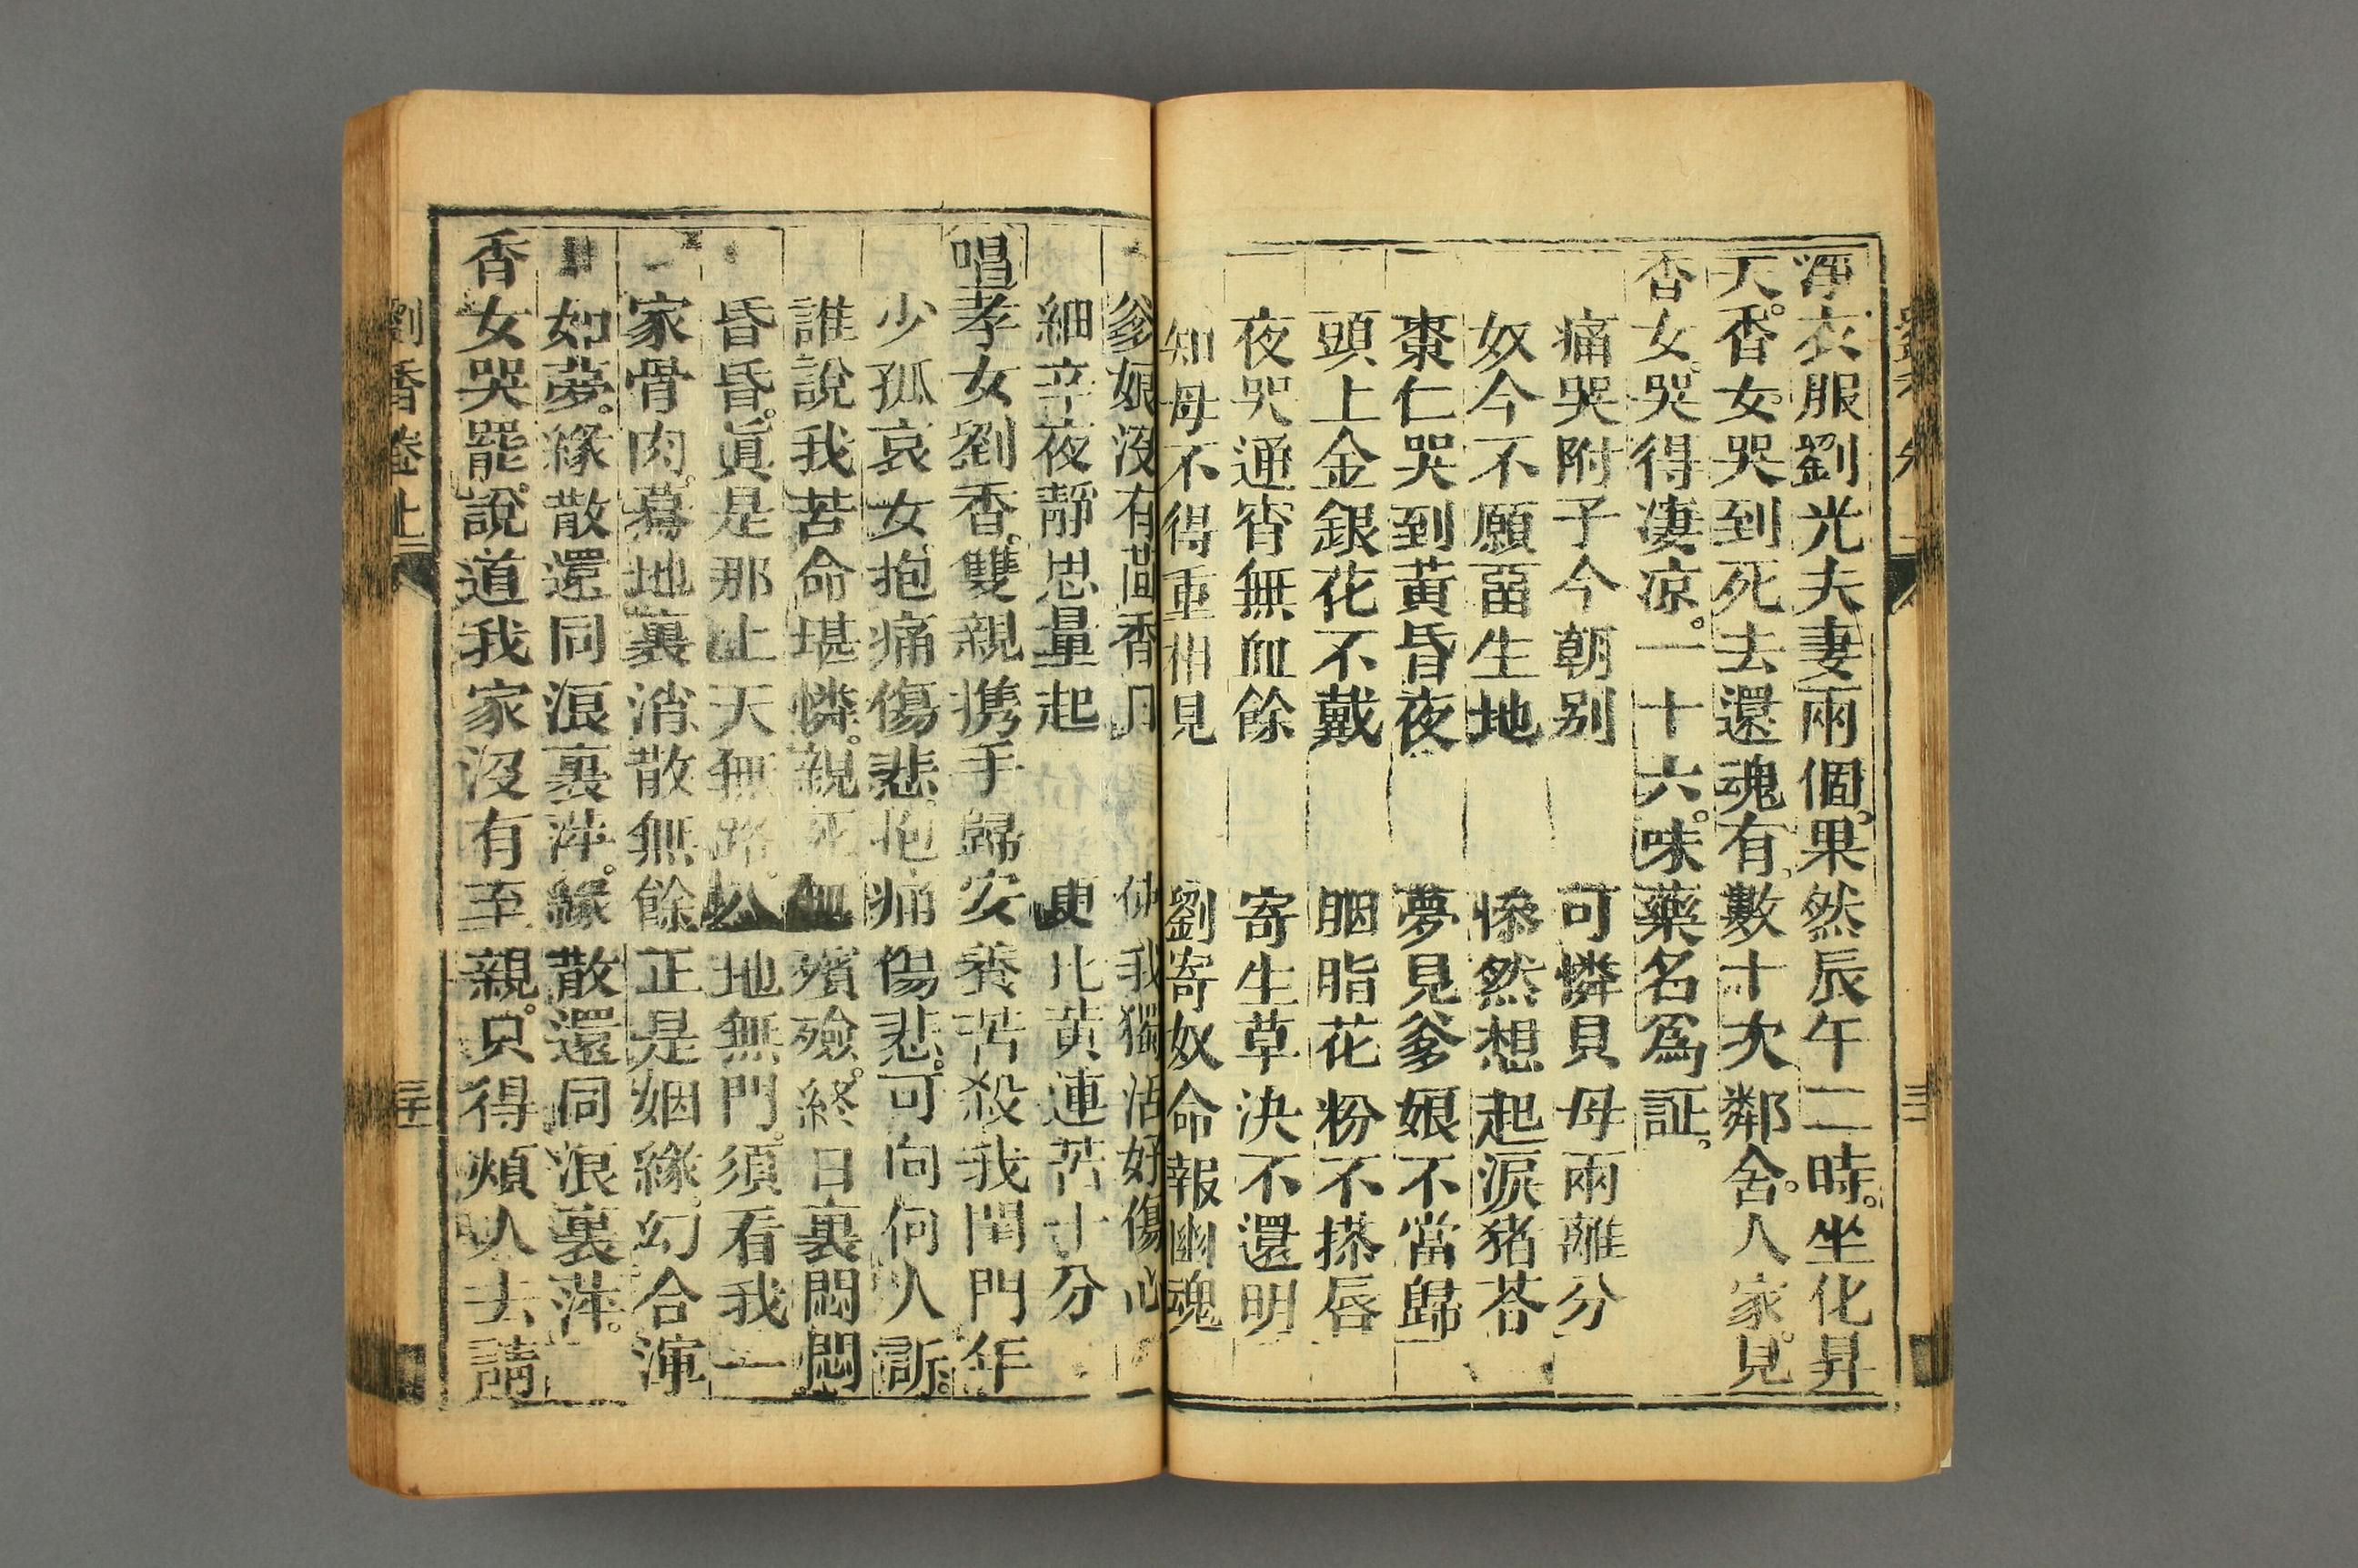 淨衣服劉光夫妻兩個。果然辰午二時。坐化昇
天。香女。哭到死去還魂有、數十次鄰舍。人家。見
香女。哭得淒凉。一十六。味藥名爲証。
痛哭附子今朝别 可憐貝母兩離分
奴今不願畱生地 慘然想起淚猪苓
棗仁哭到黃昏夜 夢見爹娘不當歸
頭上金銀花不戴 胭脂花粉不搽唇
夜哭通宵無血餘 寄生草決不還明
知母不得重相見 劉寄奴命報幽魂
爹娘没有茴香月 使我獨活好傷心
細辛夜靜思量起 更比黃連苦十分
唱孝女劉香。雙親携手歸安養苦殺我閨門年
少孤哀女。抱痛傷悲。抱痛傷悲。可向何人訴。
誰說我苦命堪憐。親死無殯殮。終日裏悶悶
昏昏。眞是那上天無路。入地無門。須看我一
家骨肉。驀地裏消散無餘正是姻緣。幻合渾
如夢。緣散還同浪裏萍。緣散還同浪裏萍。
香女哭罷。說道我家没有至親。只得煩人去請
劉香卷上